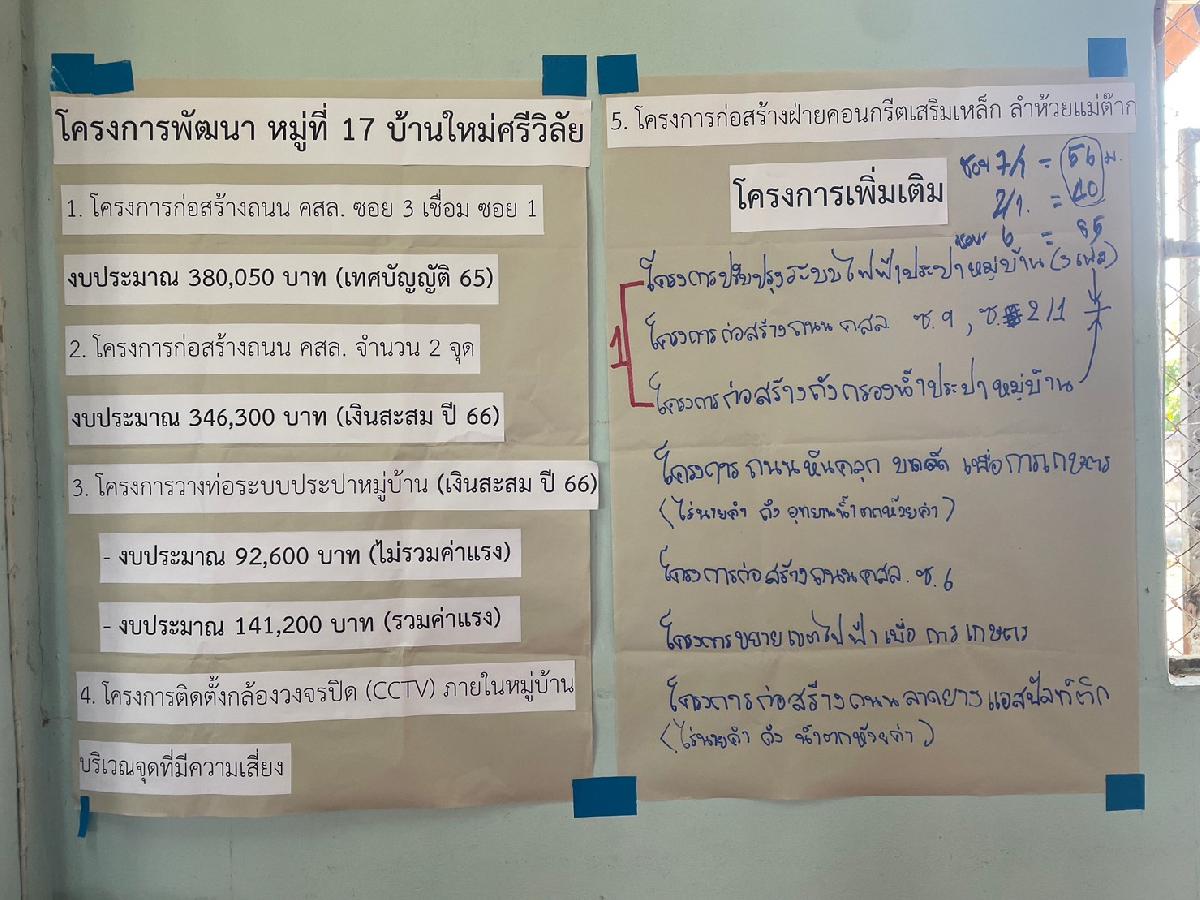 โครงการพัฒนา หมู่ที่ 17 บ้านใหม่ศรีวิลัย
1. โครงการก่อสร้างถนน คสล. ซอย 3 เชื่อม ซอย 1
งบประมาณ 380,050 บาท (เทศบัญญัติ 65)
2. โครงการก่อสร้างถนน คสล. จำนวน 2 จุด
งบประมาณ 346,300 บาท (เงินสะสม ปี 66)
3. โครงการวางท่อระบบประปาหมู่บ้าน (เงินสะสม ปี 66)
- งบประมาณ 92,600 บาท (ไม่รวมค่าแรง)
- งบประมาณ 141,200 บาท (รวมค่าแรง)
4. โครงการติดตั้งกล้องวงจรปิด (CCTV) ภายในหมู่บ้าน
บริเวณจุดที่มีความเสี่ยง
5. โครงการก่อสร้างฝายคอนกรีตเสริมเหล็ก ลำห้วยแม่ต๊าก
โครงการเพิ่มเติม
ซอย = 56 ม.
2/1. = 40
ซอย 6 =
1
โครงการปรับปรุงระบบไฟฟ้าประปาหมู่บ้าน (3 เฟส)
โครงการก่อสร้างถนน คสล. ซ. 9, ซ. 2/1
โครงการก่อสร้างถังกรองน้ำประปาหมู่บ้าน
โครงการถนนหินคลุก บดอัด เพื่อการเกษตร
(ไร่นายคำ ถึง อุทยานน้ำตกห้วยคำ)
โครงการก่อสร้างถนนคสล. ซ. 6
โครงการขยายเขตไฟฟ้าเพื่อการเกษตร
โครงการก่อสร้างถนนลาดยางแอสฟัลท์ติก
(ไร่นายคำ ถึง น้ำตกห้วยคำ)